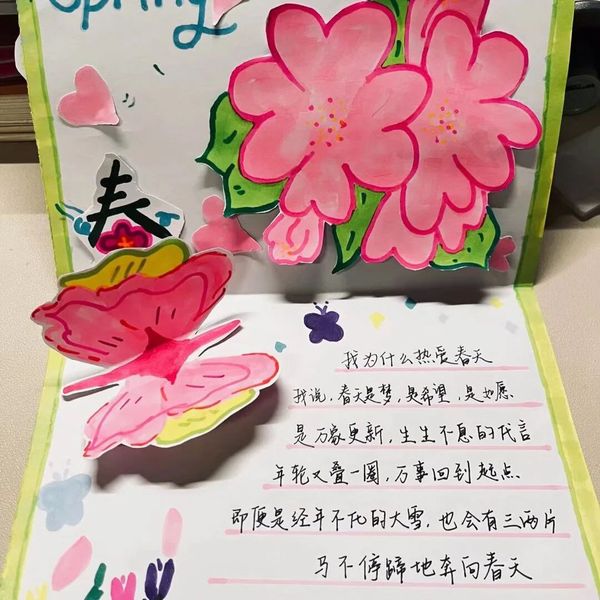 Spring
春
我为什么热爱春天
我说,春天是梦,是希望,是如愿.
是万象更新,生生不息的代言
年轮又叠一圈,万事回到起点.
即便是经年不化的大雪,也会有三两片
马不停蹄地奔向春天